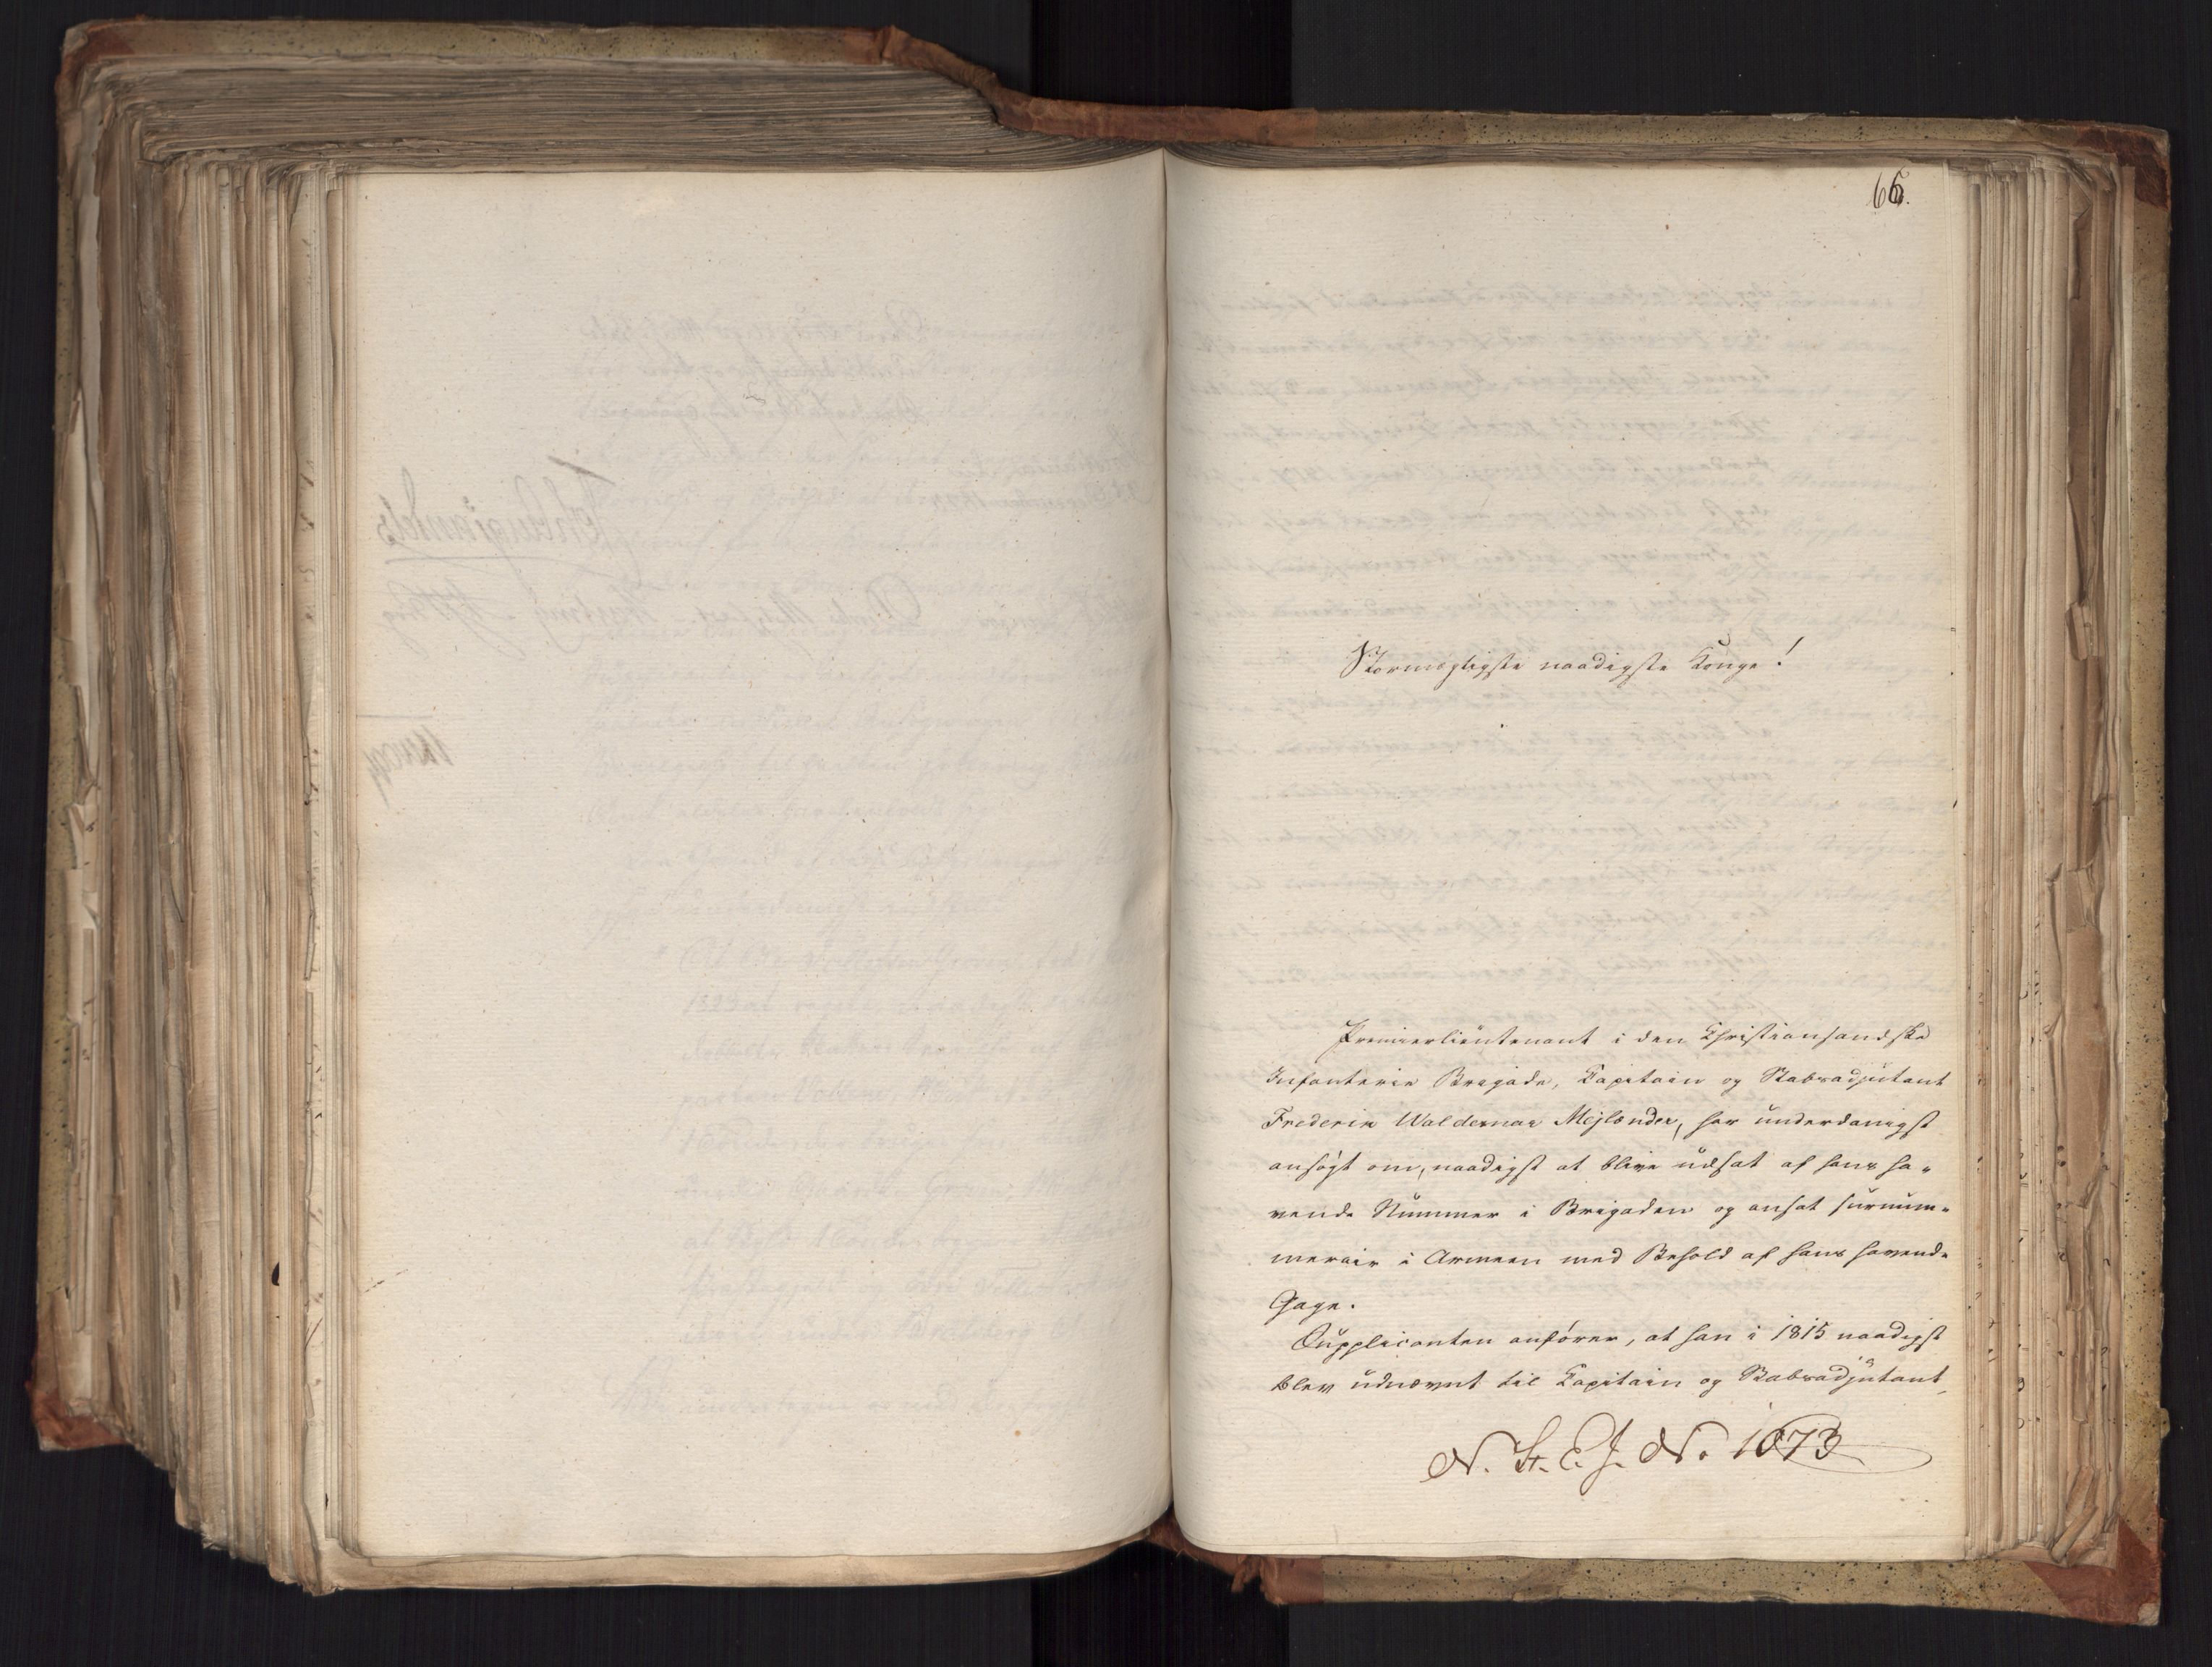 66.
Stormægtigste naadigste Konge!
Premierlieutenant i den Christiansandske
Infanterie Brigade, Kapitain og Stabsadjutant
Frederik Waldemar Mejlænder, har underdanigst
ansøgt om, naadigst at blive udsat af hans ha-
vende Nummer i Brigaden og ansat surnum-
merair i Armeen med Behold af hans havende
Gage.
Supplicanten anfører, at han i 1815 naadigst
blev udnævnt til Kapitain og Stabsadjutant,
N. St. E. J. No. 1073